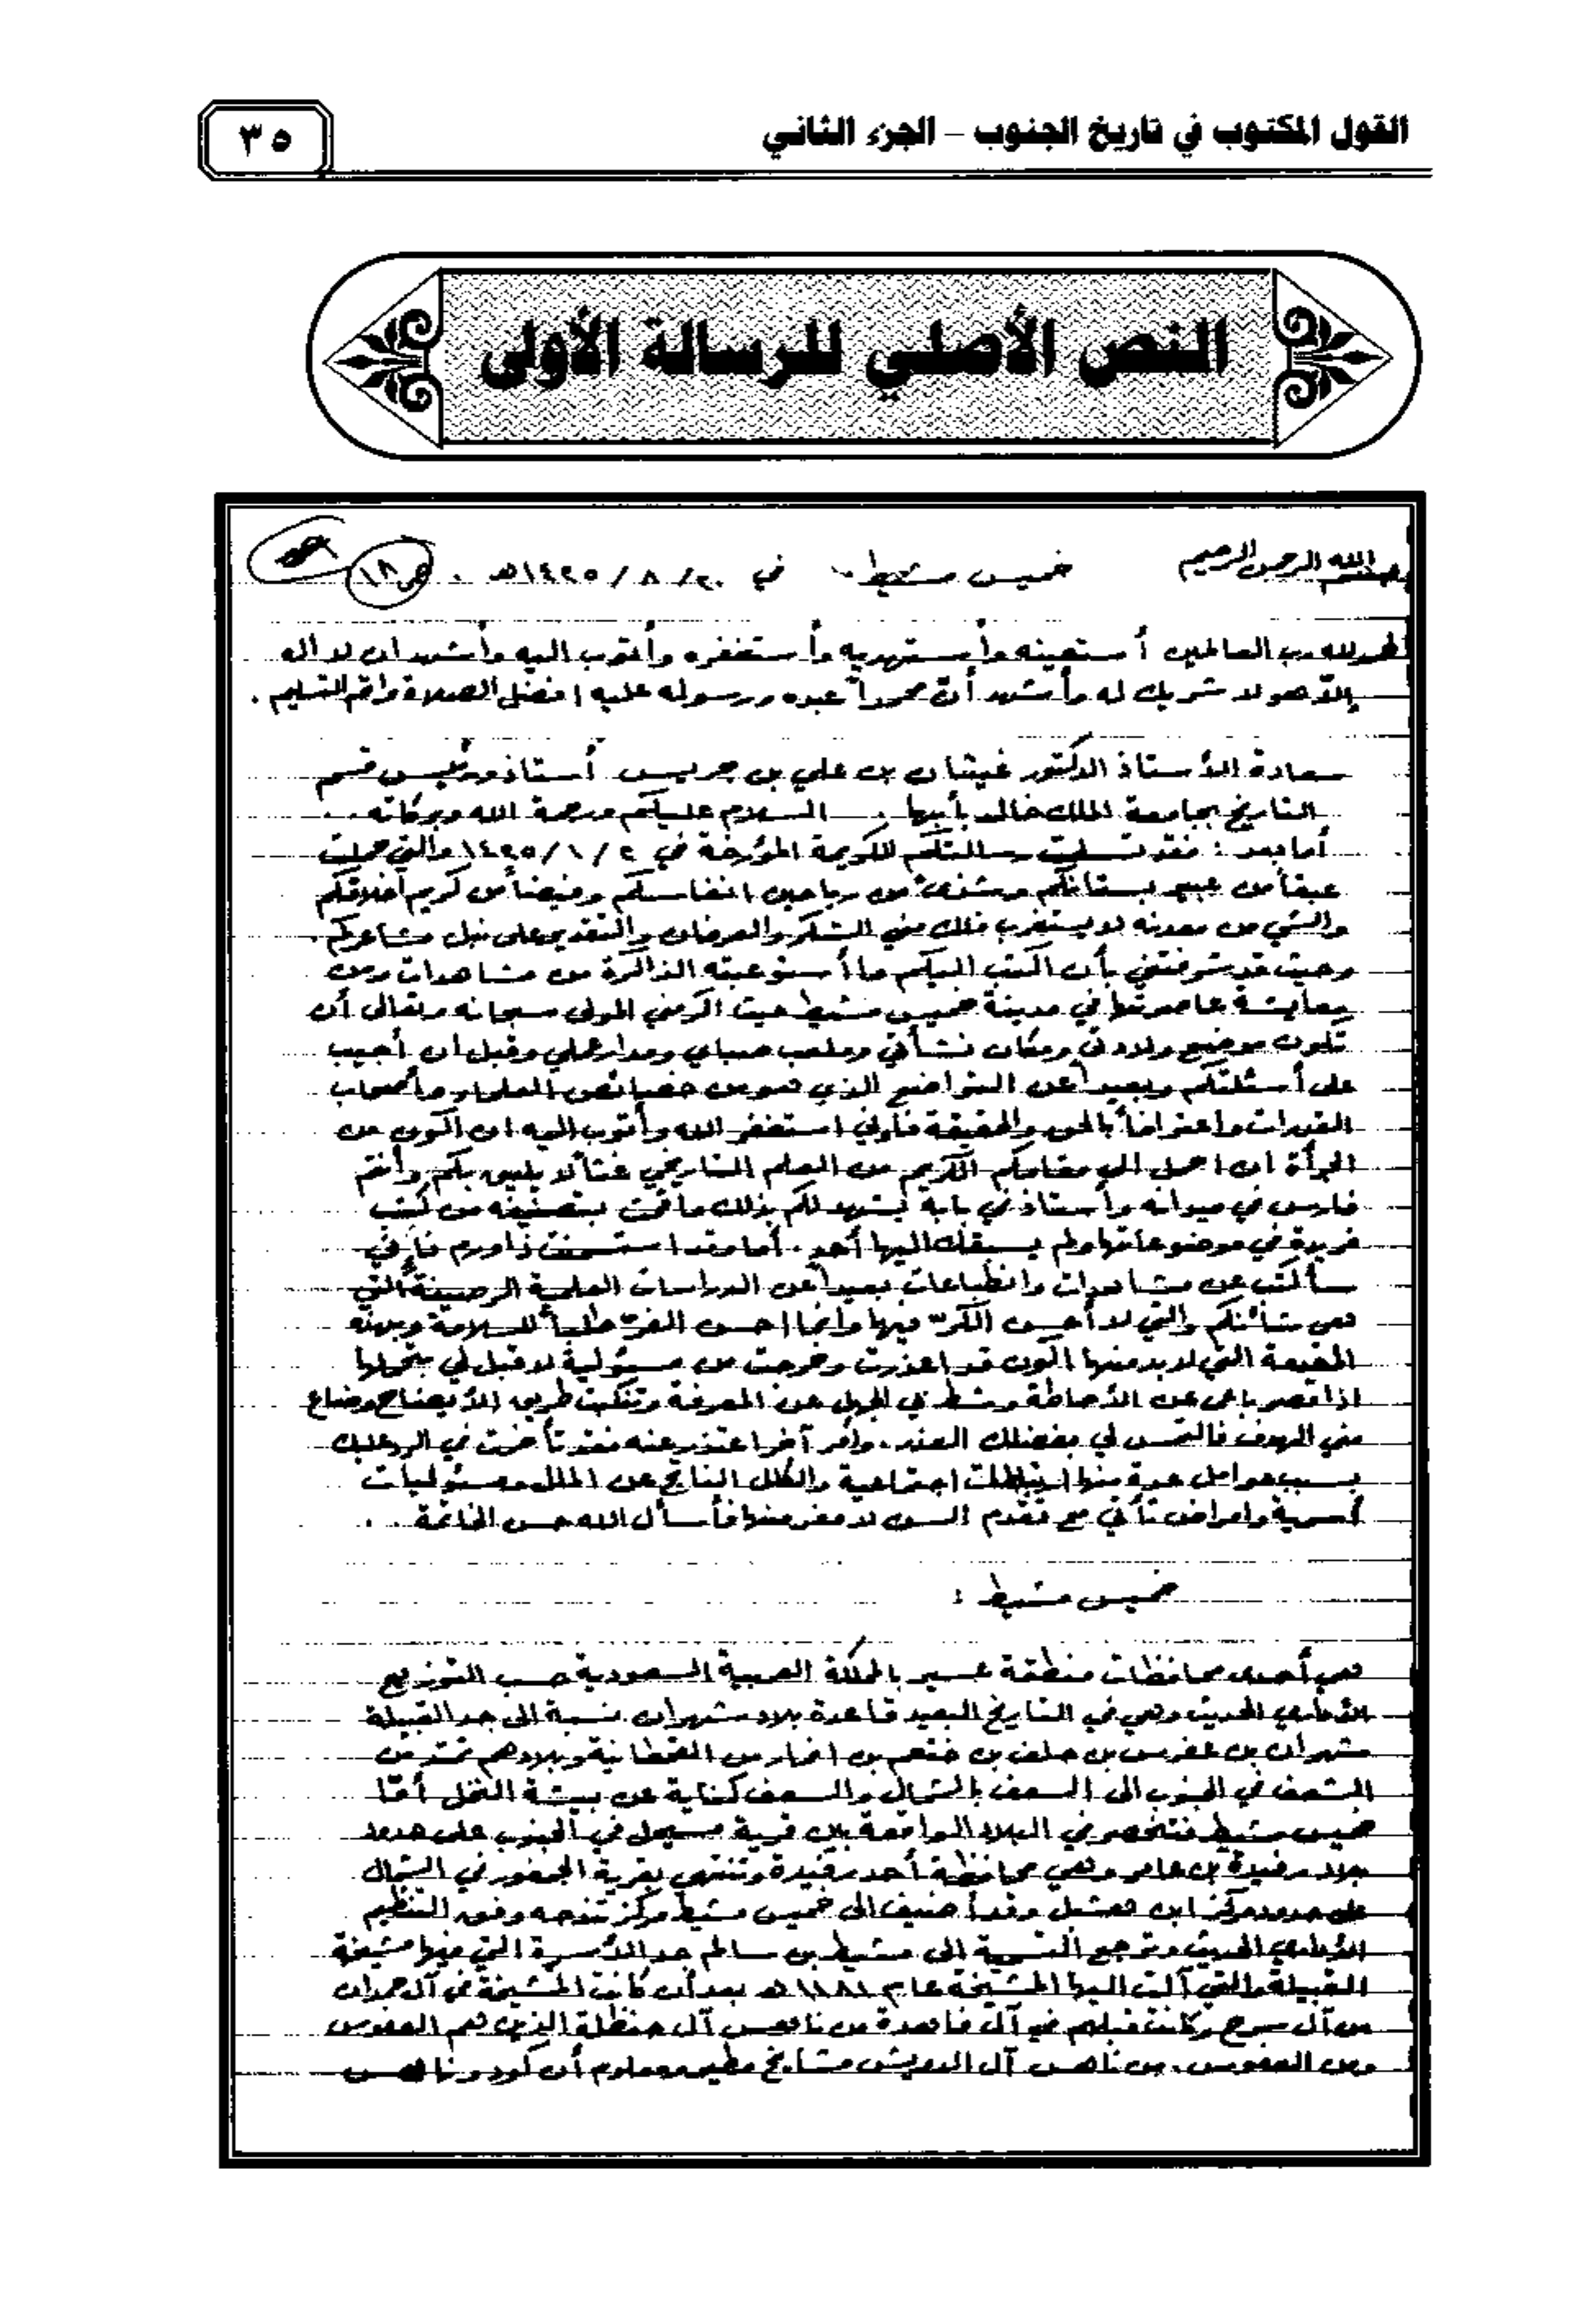 القول المكتوب في تاريخ الجنوب – الجزء الثاني
٣٥
النص الأصلي للرسالة الأولى
بسم الله الرحمن الرحيم خميس مشيط في ٢٠/٨/١٤٢٥هـ. ص١٨
الحمد لله رب العالمين أستعينه وأستهديه وأستغفره وأتوب اليه وأشهد ان لا اله
إلاّ هو لا شريك له وأشهد أنّ محمداً عبده ورسوله عليه افضل الصلاة واتم التسليم.
سعادة الأستاذ الدكتور غيثان بن علي بن جريس أستاذ ورئيس قسم
التاريخ بجامعة الملك خالد بأبها . السلام عليكم ورحمة الله وبركاته..
أما بعد : فقد تسلمت رسالتكم الكريمة المؤرخة في ٢/١/١٤٢٥ والتي حملت
عبقاً من عبير بستانكم وشذىً من رياحين انفاسكم وفيضاً من كريم أخلاقكم
والشي من معدنه لا يستغرب فلك مني الشكر والعرفان والتقدير على نبل مشاعركم.
وحيث قد شرفتني بأن اكتب اليكم ما أستوعبته الذاكرة من مشاهدات ومن
معايشة عاصرتها في مدينة خميس مشيط حيث اكرمني المولى سبحانه وتعالى أن
تكون موضع ولادتي ومكان نشأتي وملعب صباي ومدار عملي وقبل ان أجيب
على أسئلتكم وبعيداً عن التواضع الذي هو من خصائص العلماء وأصحاب
القدرات واعترافاً بالحق والحقيقة فأنني استغفر الله وأتوب اليه ان اكون من
الجرأة ان احمل الى مقامكم الكريم من العلم التاريخي غثاً لا يليق بكم وأنتم
فارس في ميدانه وأستاذ في بابه يشهد لكم بذلك ما قمت بتصنيفه من كتب
فريدة في موضوعاتها ولم يسبقك اليها أحد . أما وقد استسمنت ذا ورم فإنني
سأكتب عن مشاهدات وانطباعات بعيداً عن الدراسات العلمية الرصينة التي
هي شأنكم والتي لا أحسن الكرّ فيها وانما احسن الفرّ طلباً للسلامة وبهذه
المقدمة التي لا بد منها اكون قد اعذرت وخرجت من مسئولية لا قبل لي بتحملها
اذا قصر باعي عن الأحاطة وشط بي الجهل عن المعرفة وتنكبت طريق الأيضاح وضاع
مني الهدف فالتمس لي بفضلك العذر. وأمر آخر اعتذر عنه فقد تأخرت في الرد عليك
بسبب عوامل عدة منها ارتباطات اجتماعية والكلل الناتج عن الملل ومسئوليات
أسرية وامراض تأتي مع تقدم السن لا مفر منها فأسأل الله حسن الخاتمة..
خميس مشيط :
هي أحدى محافظات منطقة عسير بالمملكة العربية السعودية حسب التوزيع
الأداري الحديث وهي في التاريخ البعيد قاعدة بلاد شهران نسبة الى جد القبيلة
شهران بن عفرس بن حلف بن خثعم بن انمار من القحطانية وبلادهم تمتد من
الشعف في الجنوب الى السعف بالشمال والسعف كناية عن بيشة النخل أمّا
خميس مشيط فتنحصر في البلاد الواقعة بين قرية في الجنوب على حدود
بلاد رفيدة بن عامر وهي محافظة أحد رفيدة وتنتهي بقرية في الشمال
على حدود مركز ابن هشبل وقد أضيف الى خميس مشيط مركز تندحه وفق التنظيم
الأداري الحديث وترجع التسمية الى مشيط بن سالم جد الأسرة التي فيها مشيخة
القبيلة والتي آلت اليها المشيخة عام ١١٨١هـ بعد أن كانت المشيخة في آل حمدان
من آل سرح وكانت قبلهم في آل فاهدة من ناهس آل حنظلة الذين هم
ومن ناهس آل الدويش مشايخ مطير ومعلوم أن كود وناهس